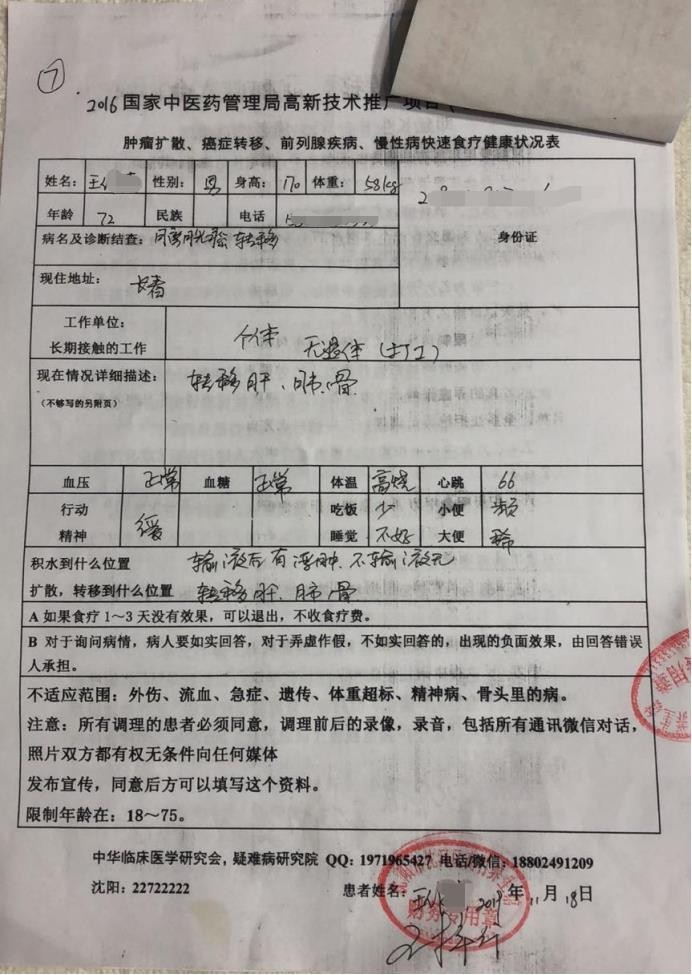 ⑦
2016国家中医药管理局高新技术推广项目
肿瘤扩散、癌症转移、前列腺疾病、慢性病快速食疗健康状况表
姓名：王 性别：男 身高：170 体重：58kg
年龄 72 民族 电话
身份证
病名及诊断结查： 转移
现住地址：
工作单位： 个体 无退休（打工）
长期接触的工作
现在情况详细描述： 转移肝、肺、骨
（不够写的另附页）
血压 正常 血糖 正常 体温 高烧 心跳 66
行动 缓 吃饭 少 小便 频
精神 睡觉 不好 大便 稀
积水到什么位置 输液后有浮肿.不输液无
扩散，转移到什么位置 转移肝、肺、骨
A 如果食疗 1～3 天没有效果，可以退出，不收食疗费。
B 对于询问病情，病人要如实回答，对于弄虚作假，不如实回答的，出现的负面效果，由回答错误
人承担。
不适应范围：外伤、流血、急症、遗传、体重超标、精神病、骨头里的病。
注意：所有调理的患者必须同意，调理前后的录像，录音，包括所有通讯微信对话，
照片双方都有权无条件向任何媒体
发布宣传，同意后方可以填写这个资料。
限制年龄在：18～75。
中华临床医学研究会，疑难病研究院 QQ：1971965427 电话/微信：18802491209
沈阳：22722222 患者姓名：王 年 11 月 18 日
财务专用章